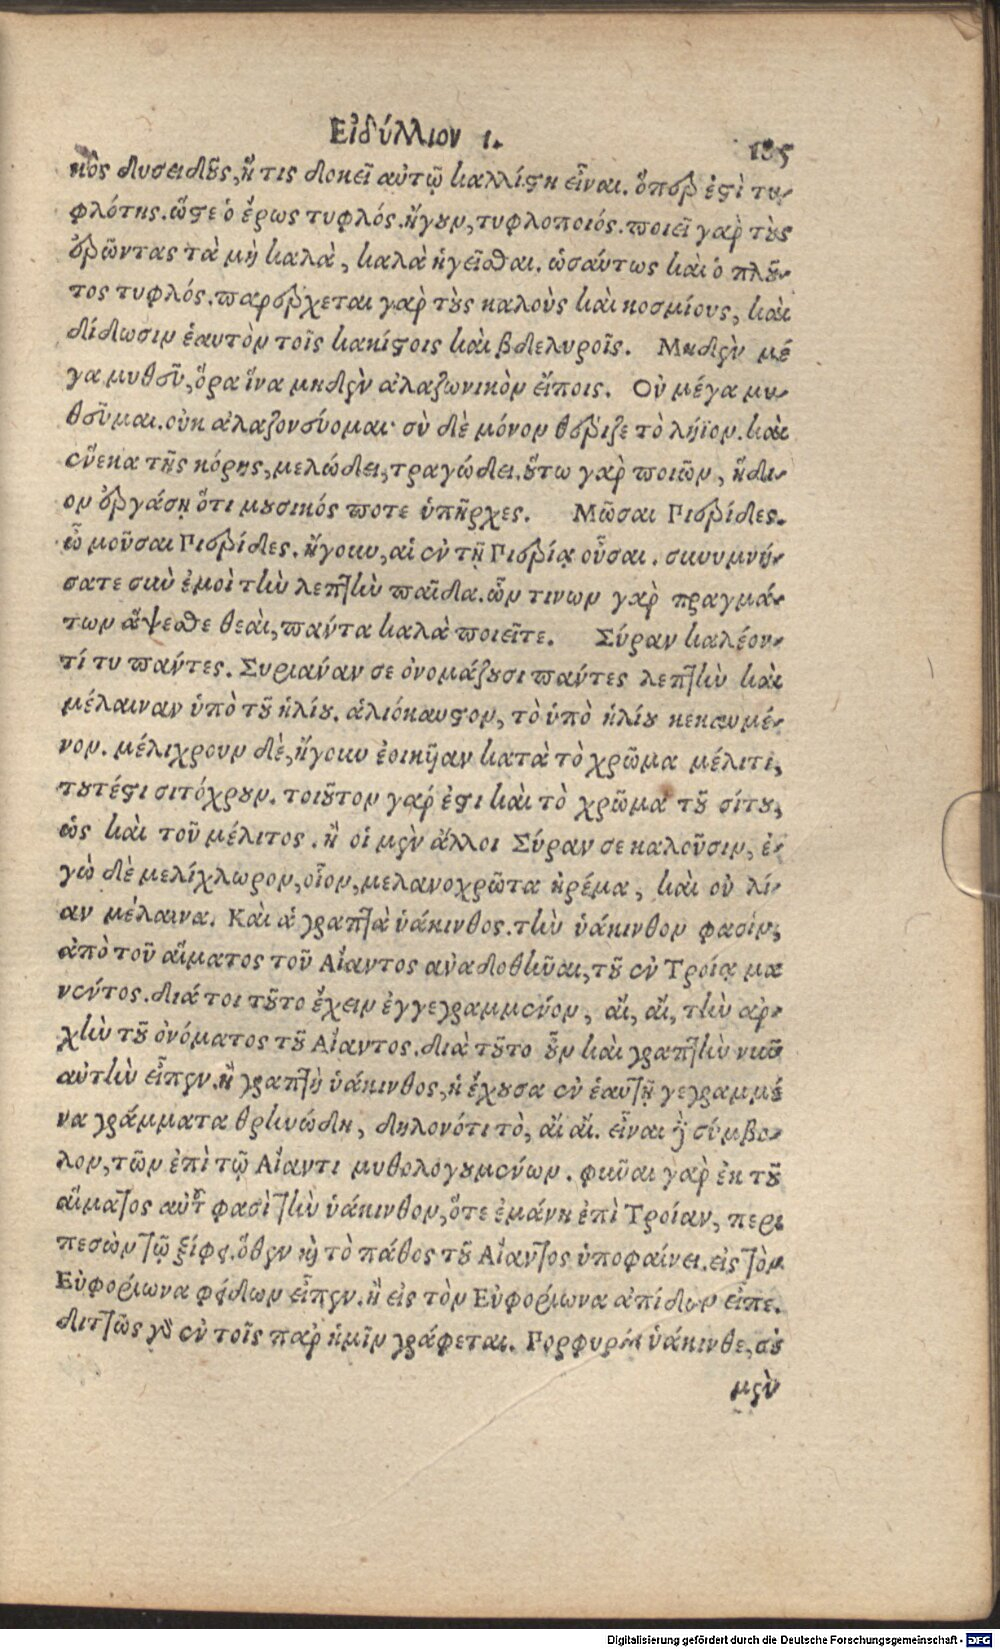 Εἰδύλλιον ι.
185
κὸς δυσειδοῦς, ἥτις δοκεῖ αὐτῷ καλλίστη εἶναι. ὅπερ ἐστὶ τυ-
φλότης. ὥστε ὁ ἔρως τυφλός. ἤγουν, τυφλοποιός. ποιεῖ γὰρ τοὺς
ὁρῶντας τὰ μὴ καλὰ, καλὰ ἡγεῖσθαι. ὡσαύτως καὶ ὁ πλοῦ-
τος τυφλός. παρέρχεται γὰρ τοὺς καλοὺς καὶ κοσμίους, καὶ
δίδωσιν ἑαυτὸν τοῖς κακίστοις καὶ βδελυροῖς. Μηδὲν μέ
γα μυθοῦ, ὅρα ἵνα μηδὲν ἀλαζωνικὸν εἴποις. Οὐ μέγα μυ-
θοῦμαι. οὐκ ἀλαζονεύομαι· σὺ δὲ μόνον θέριζε τὸ λήϊον. καὶ
ἕνεκα τῆς κόρης, μελώδει, τραγώδει. οὕτω γὰρ ποιῶν, ἥδι-
ον ἐργάσῃ ὅτι μουσικός ποτε ὑπῆρχες. Μῶσαι Πιερίδες.
ὦ μοῦσαι Πιερίδες. ἤγουν, αἱ ἐν τῇ Πιερίᾳ οὖσαι. συνυμνή-
σατε σὺν ἐμοὶ τὴν λεπτὴν παῖδα. ὧν τινων γὰρ πραγμά-
των ἅψεσθε θεαὶ, πάντα καλὰ ποιεῖτε. Σύραν καλέον-
τί τυ πάντες. Συριαύαν σε ὀνομάζουσι πάντες λεπτὴν καὶ
μέλαιναν ὑπὸ τοῦ ἡλίου. ἁλιόκαυστον, τὸ ὑπὸ ἡλίου κεκαυμέ-
νον. μέλιχρουν δὲ, ἤγουν ἐοικῆαν κατὰ τὸ χρῶμα μέλιτι,
τουτέστι σιτόχρουν. τοιοῦτον γάρ ἐστι καὶ τὸ χρῶμα τοῦ σίτου,
ὡς καὶ τοῦ μέλιτος. ἢ οἱ μὲν ἄλλοι Σύραν σε καλοῦσιν, ἐ-
γὼ δὲ μελίχλωρον, οἷον, μελανοχρῶτα ἠρέμα, καὶ οὐ λί-
αν μέλαινα. Καὶ ἁ γραπτὰ ὑάκινθος. τὴν ὑάκινθον φασὶν,
ἀπὸ τοῦ αἵματος τοῦ Αἴαντος ἀναδοθῆναι, τοῦ ἐν Τροίᾳ μα
νέντος. διά τοι τοῦτο ἔχειν ἐγγεγραμμένον, αἴ, αἴ, τὴν ἀρ-
χὴν τοῦ ὀνόματος τοῦ Αἴαντος. διὰ τοῦτο οὖν καὶ γραπτὴν νῦν
αὐτὴν εἶπεν. ἢ γραπτὴ ὑάκινθος, ἡ ἔχουσα ἐν ἑαυτῇ γεγραμμέ
να γράμματα θρηνώδη, δηλονότι τὸ, αἴ αἴ. εἶναι δὲ σύμβο-
λον, τῶν ἐπὶ τῷ Αἴαντι μυθολογουμένων. φῦναι γὰρ ἐκ τοῦ
αἵματος αὐτοῦ φασὶ τὴν ὑάκινθον, ὅτε ἐμάνη ἐπὶ Τροίαν, περι
πεσὼν τῷ ξίφει. ὅθεν καὶ τὸ πάθος τοῦ Αἴαντος ὑποφαίνει. εἰς τὸν
Εὐφορίωνα φείδων εἶπεν. ἢ εἰς τὸν Εὐφορίωνα ἀπίδων εἶπε.
διττῶς γὰρ ἐν τοῖς παρ ἡμῖν γράφεται. Πορφυρέη ὑάκινθε, σὲ
μὲν
Digitalisierung gefördert durch die Deutsche Forschungsgemeinschaft - DFG